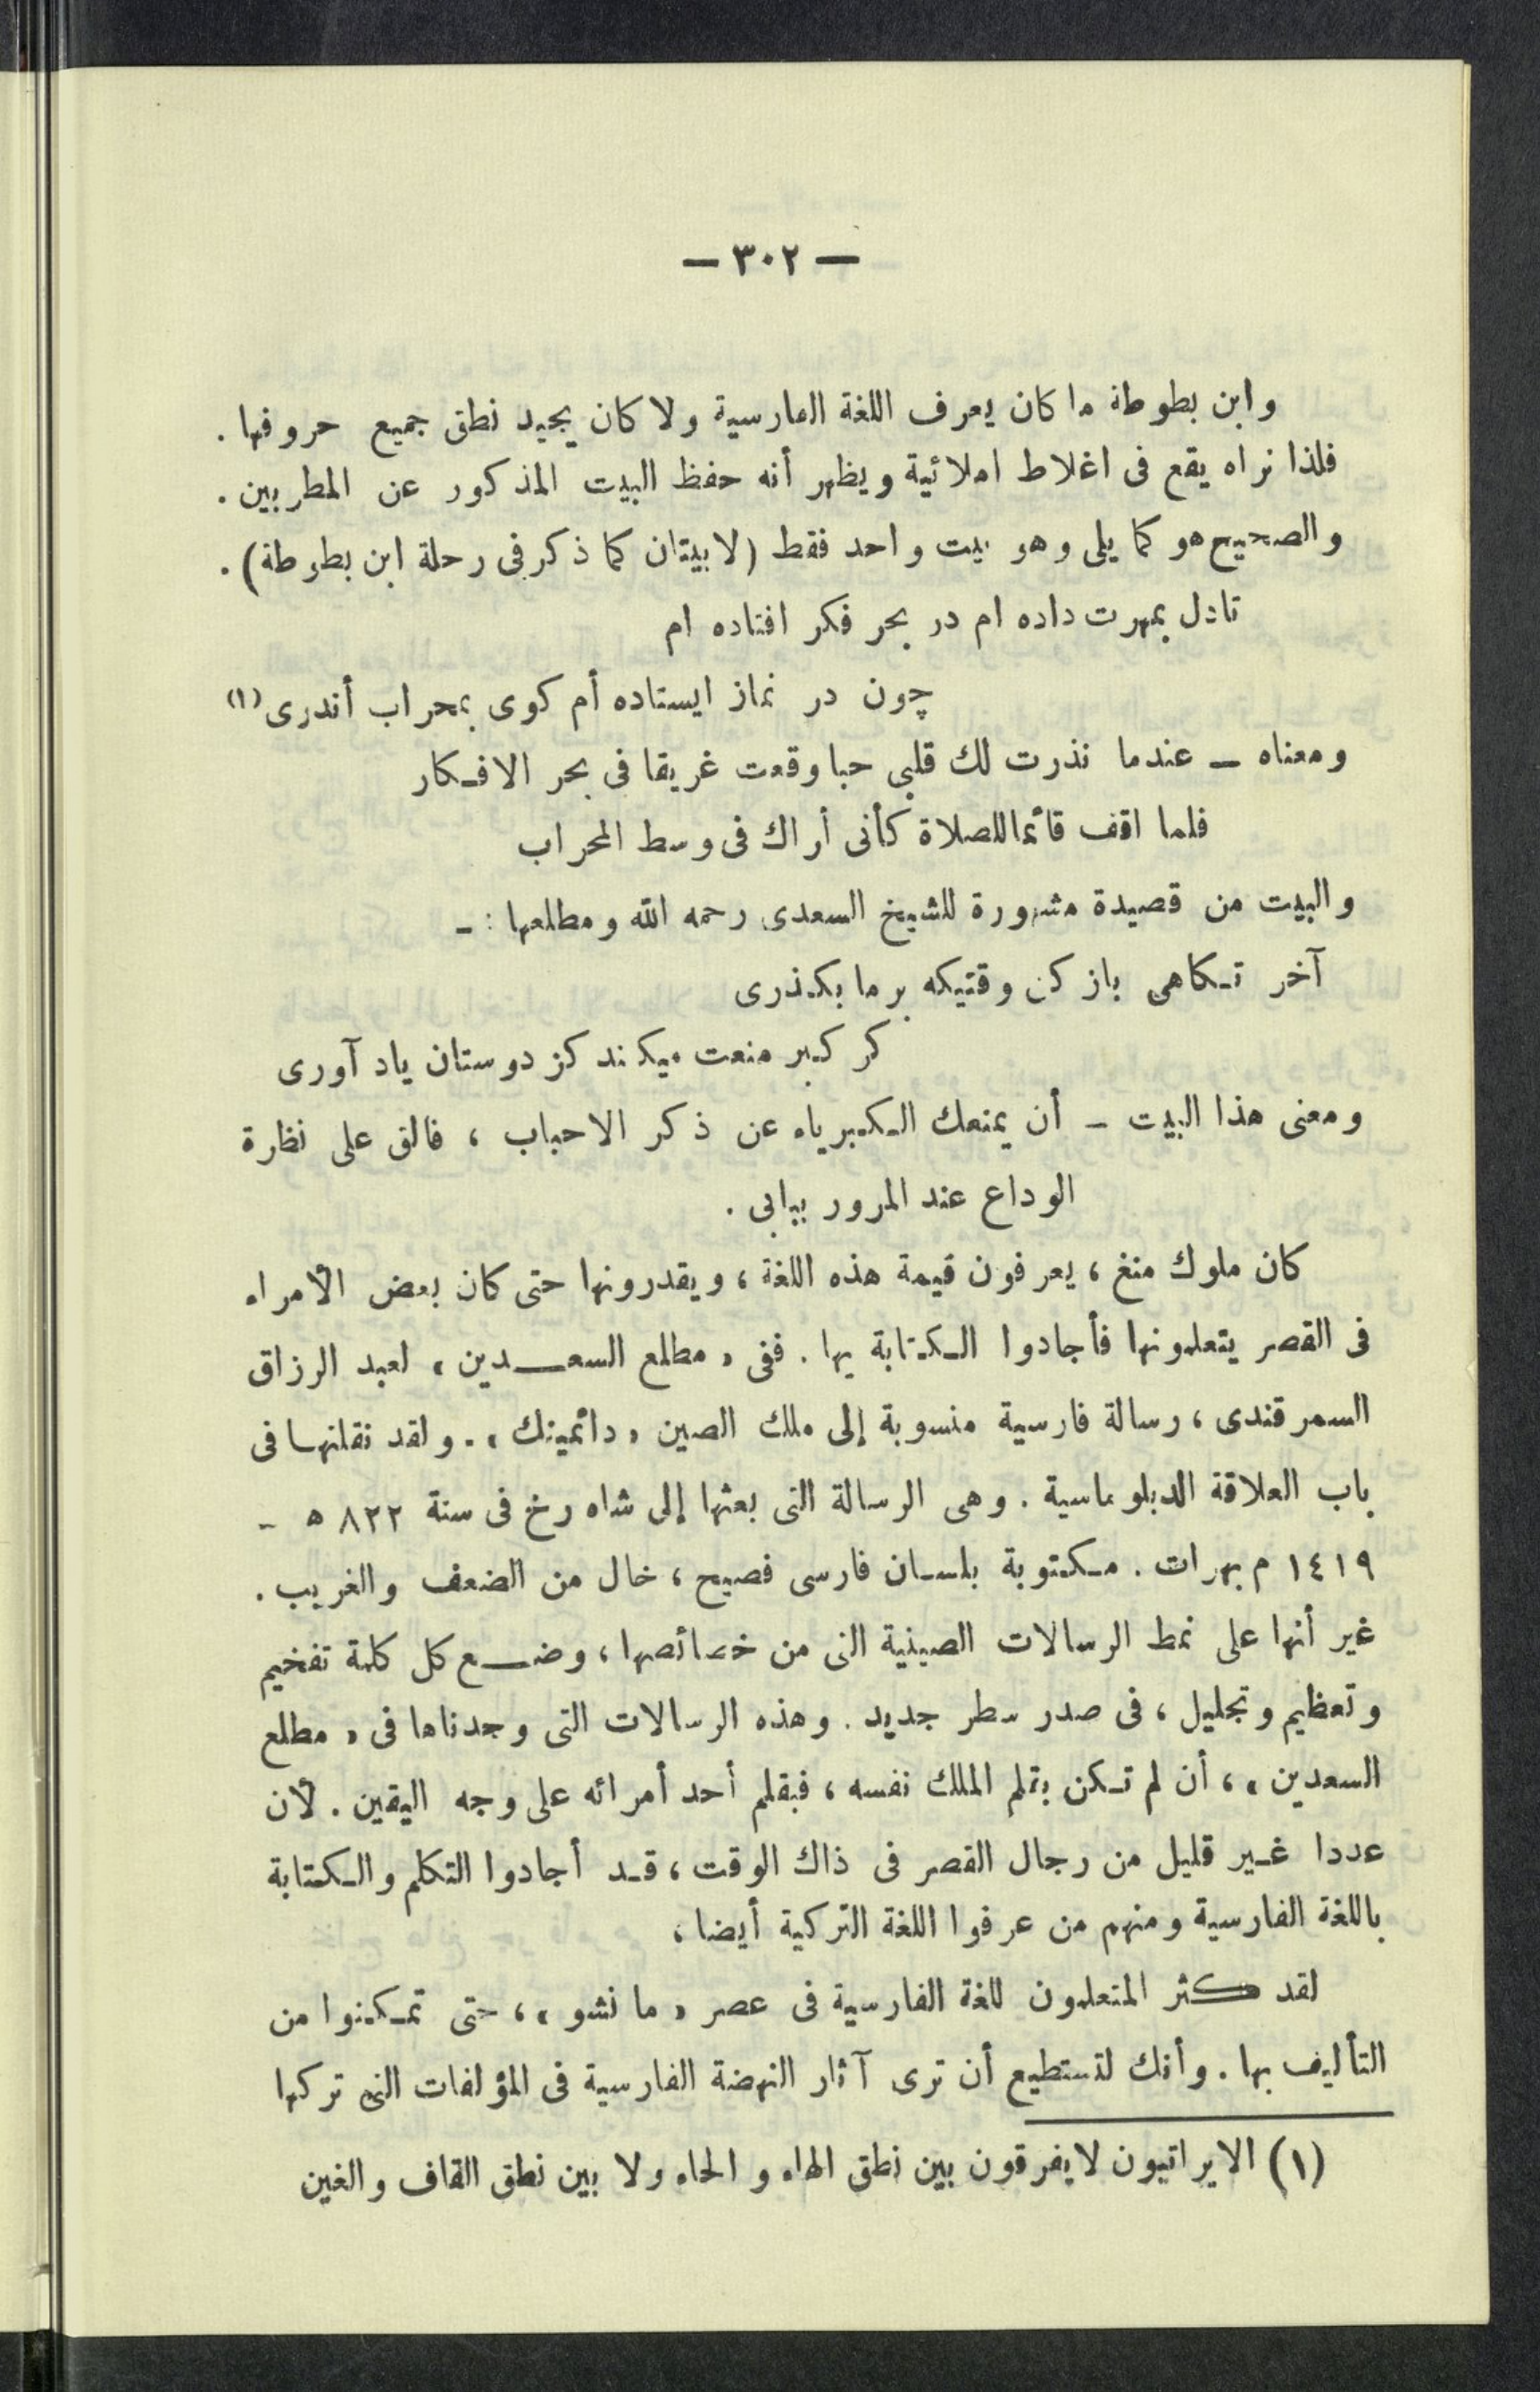 — ٣٠٢ —
وابن بطوطة ما كان يعرف اللغة الفارسية ولا كان يجيد نطق جميع حروفها .
فلذا نراه يقع فى اغلاط املائية ويظهر أنه حفظ البيت المذكور عن المطربين .
والصحيح هو كما يلى وهو بيت واحد فقط (لا بيتان كما ذكر فى رحلة ابن بطوطة) .
تادل بمهرت داده ام در بحر فكر افتاده ام
چون در نماز ايستاده أم كوى بمحراب أندرى (١)
ومعناه — عندما نذرت لك قلبى حبا وقعت غريقا فى بحر الافكار
فلما اقف قائما للصلاة كأنى أراك فى وسط المحراب
والبيت من قصيدة مشهورة للشيخ السعدى رحمه الله ومطلعها : -
آخر تكاهى باز كن وقتيكه بر ما بكذرى
كر كبر منعت ميكند كز دوستان ياد آورى
ومعنى هذا البيت - أن يمنعك الكبرياء عن ذكر الاحباب ، فالق على نظارة
الوداع عند المرور ببابى .
كان ملوك منغ ، يعرفون قيمة هذه اللغة ، ويقدرونها حتى كان بعض الأمراء
فى القصر يتعلمونها فأجادوا الكتابة بها . ففى « مطلع السعدين » لعبد الرزاق
السمرقندى ، رسالة فارسية منسوبة إلى ملك الصين « دائمينك » . ولقد نقلنها فى
باب العلاقة الدبلوماسية . وهى الرسالة التى بعثها إلى شاه رخ فى سنة ٨٢٢ ه -
١٤١٩ م بهرات . مكتوبة بلسان فارسى فصيح ، خال من الضعف والغريب .
غير أنها على نمط الرسالات الصينية التى من خصائصها ، وضع كل كلمة تفخيم
وتعظيم وتجليل ، فى صدر سطر جديد . وهذه الرسالات التى وجدناها فى « مطلع
السعدين » ، أن لم تكن بقلم الملك نفسه ، فبقلم أحد أمرائه على وجه اليقين . لأن
عددا غير قليل من رجال القصر فى ذاك الوقت ، قد أجادوا التكلم والكتابة
باللغة الفارسية ومنهم من عرفوا اللغة التركية أيضا ،
لقد كثر المتعلمون للغة الفارسية فى عصر « مانشو » ، حتى تمكنوا من
التأليف بها . وأنك لتستطيع أن ترى آثار النهضة الفارسية فى المؤلفات التى تركها
(١) الايراتيون لا يفرقون بين نطق الهاء والحاء ولا بين نطق القاف والغين